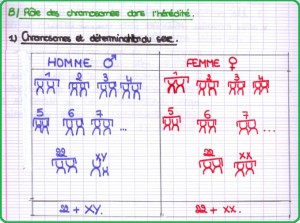 B/ Rôle des chromosomes dans l'hérédité.
1) Chromosomes et détermination du sexe.
HOMME ♂ FEMME ♀
1 2 3 4 1 2 3 4
5 6 7 ... 5 6 7 ...
22 XY 22 XX
22 + XY. 22 + XX.